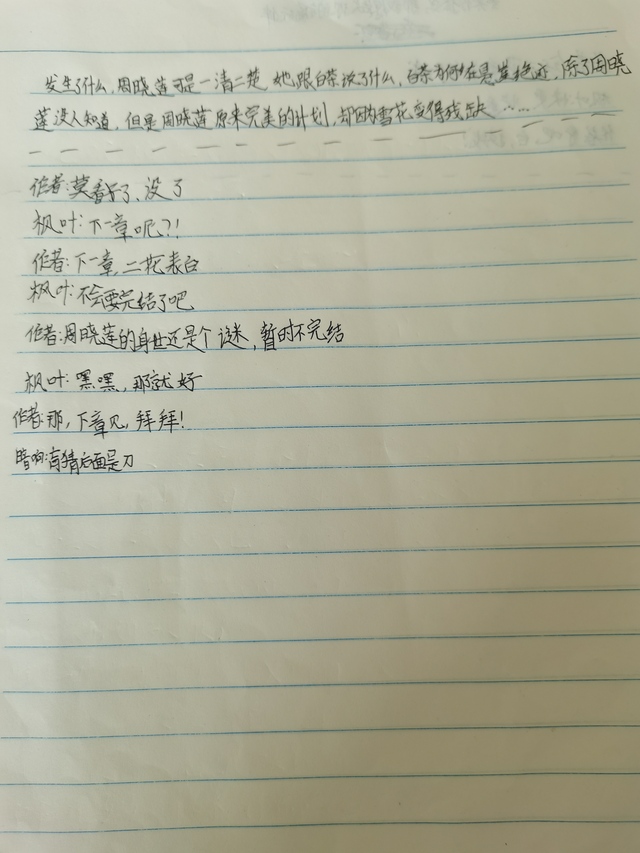 发生了什么,周晓莲可是一清二楚 她跟白茶说了什么,白茶为何在悬崖绝迹,除了周晓
莲没人知道,但是周晓莲原来完美的计划,却因为雪花变得残缺……
作者:莫看了、没了
枫叶:下一章呢?!
作者:下一章,二花表白
枫叶:不会要完结了吧
作者:周晓莲的身世还是个谜,暂时不完结
枫叶:嘿嘿,那就好
作者:那,下章见,拜拜!
暗哟:盲猜后面是刀